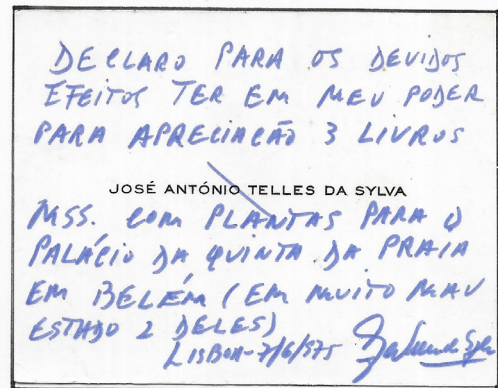 DECLARO PARA OS DEVIDOS
EFEITOS TER EM MEU PODER
PARA APRECIAÇÃO 3 LIVROS
JOSÉ ANTÓNIO TELLES DA SYLVA
MSS. COM PLANTAS PARA O
PALÁCIO DA QUINTA DA PRAIA
EM BELÉM (EM MUITO MAU
ESTADO 2 DELES)
LISBOA-7/6/975